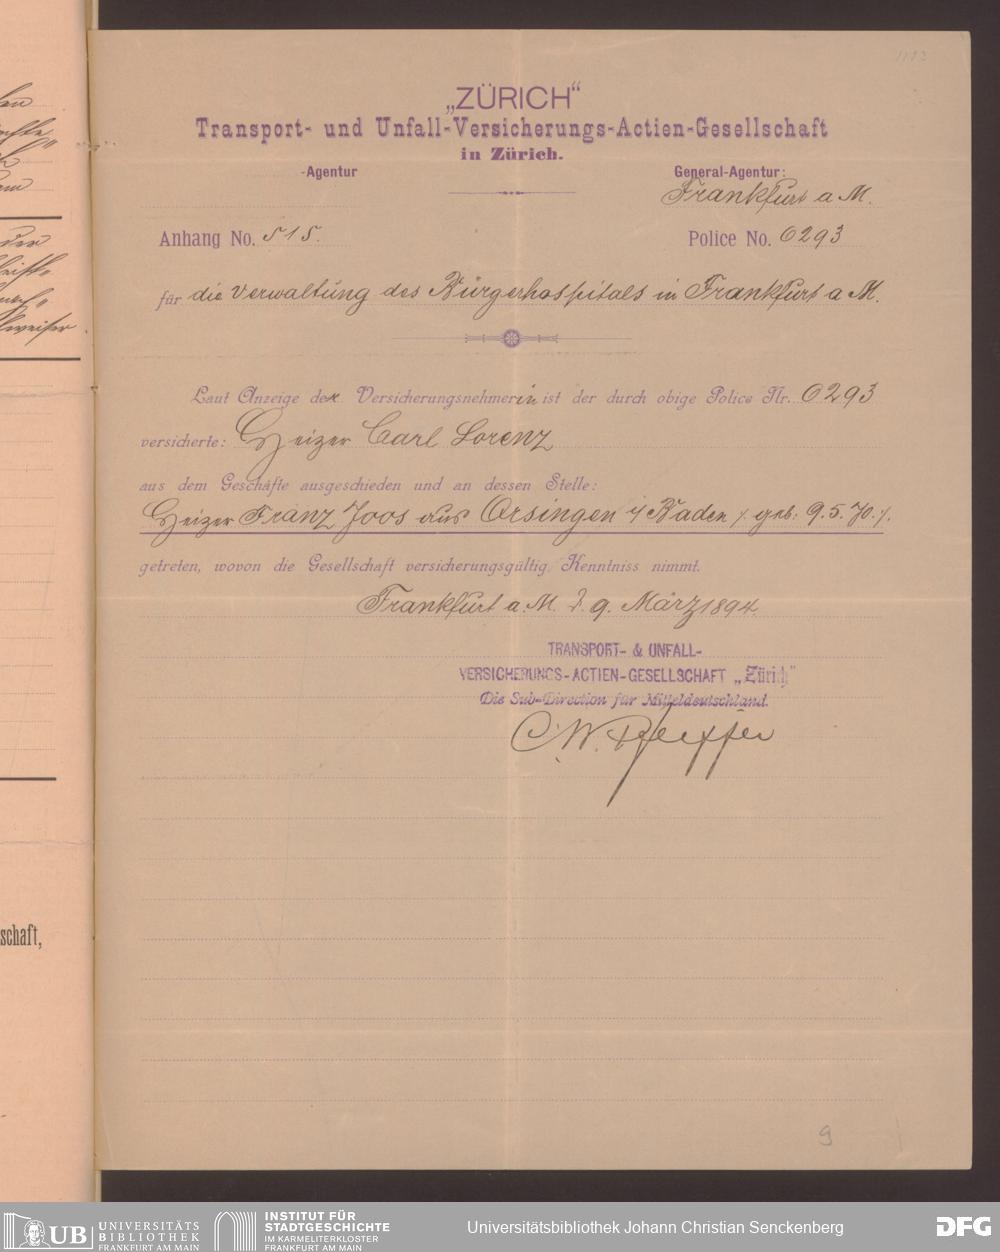 „ZÜRICH“
Transport- und Unfall-Versicherungs-Actien-Gesellschaft
in Zürich.
-Agentur
General-Agentur:
Frankfurt a M.
Anhang No. 515.
Police No. 6293
für die Verwaltung des Bürgerhospitals in Frankfurt a M.
Laut Anzeige der Versicherungsnehmerin ist der durch obige Police Nr. 6293
versicherte: Heizer Carl Lorenz
aus dem Geschäfte ausgeschieden und an dessen Stelle:
Heizer Franz Joos aus Orsingen i/ Baden /. geb: 9.5.70./.
getreten, wovon die Gesellschaft versicherungsgültig Kenntniss nimmt.
Frankfurt a. M. d. 9. März 1894.
TRANSPORT- & UNFALL-
VERSICHERUNGS-ACTIEN-GESELLSCHAFT „Zürich“
Die Sub-Direction für Mitteldeutschland.
C. W. Pfeiffer
9
schaft,
UB
UNIVERSITÄTS
BIBLIOTHEK
FRANKFURT AM MAIN
INSTITUT FÜR
STADTGESCHICHTE
IM KARMELITERKLOSTER
FRANKFURT AM MAIN
Universitätsbibliothek Johann Christian Senckenberg
DFG